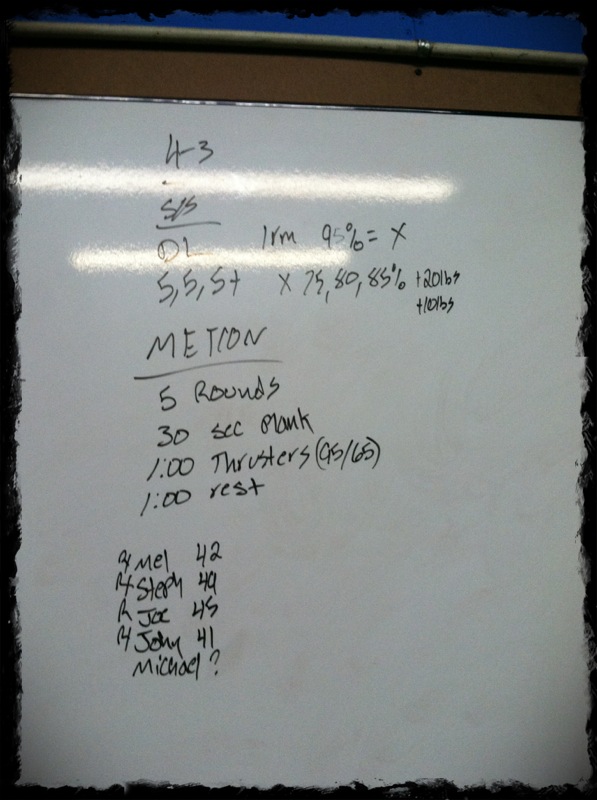 4-3
S/S
DL 1rm 95% = X
5, 5, 5+ X 75, 80, 85% +20lbs
+10lbs
METCON
5 Rounds
30 sec Plank
1:00 Thrusters (95/65)
1:00 rest
Rx Mel 42
Rx Steph 49
R Joe 45
Rx John 41
Michael ?